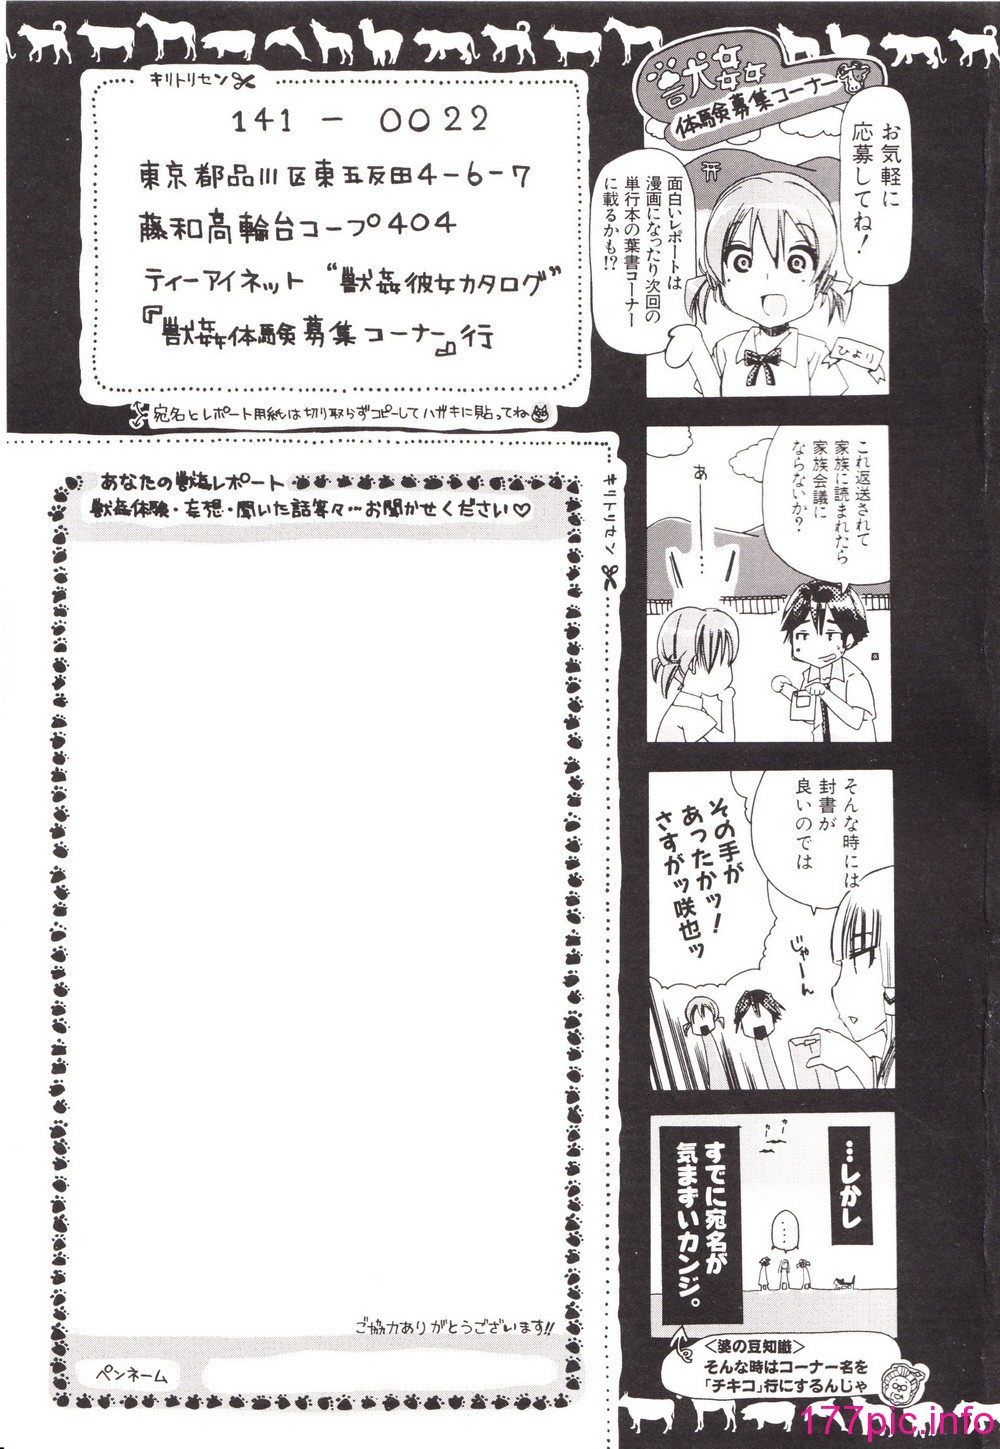 獣姦
体験募集コーナー
お気軽に
応募してね!
面白いレポートは
漫画になったり次回の
単行本の葉書コーナー
に載るかも!?
ひより
これ返送されて
家族に読まれたら
家族会議に
ならないか?
あ
…
そんな時には
封書が
良いのでは
じゃーん
その手が
あったかッ!
さすがッ咲也ッ
…しかし
……
すでに宛名が
気まずいカンジ。
<婆の豆知識>
そんな時はコーナー名を
「チキコ」行にするんじゃ
キリトリセン
141-0022
東京都品川区東五反田4-6-7
藤和高輪台コープ404
ティーアイネット “獣姦彼女カタログ”
『獣姦体験募集コーナー』行
宛名とレポート用紙は切り取らずコピーしてハガキに貼ってね
キリトリセン
あなたの獣姦レポート
獣姦体験・妄想・聞いた話等々…お聞かせください♡
ご協力ありがとうございます!!
ペンネーム
177pic.info